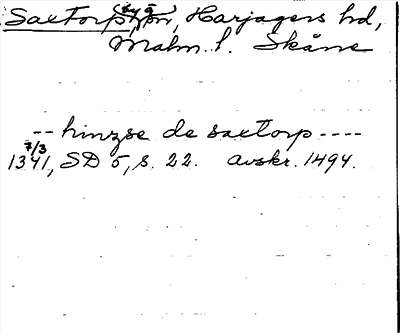 Saxtorp, Harjagers hd,
Malm. l. Skåne
-- hinzse de saxtorp ----
7/3
1341, SD 5, s. 22. avskr. 1494.